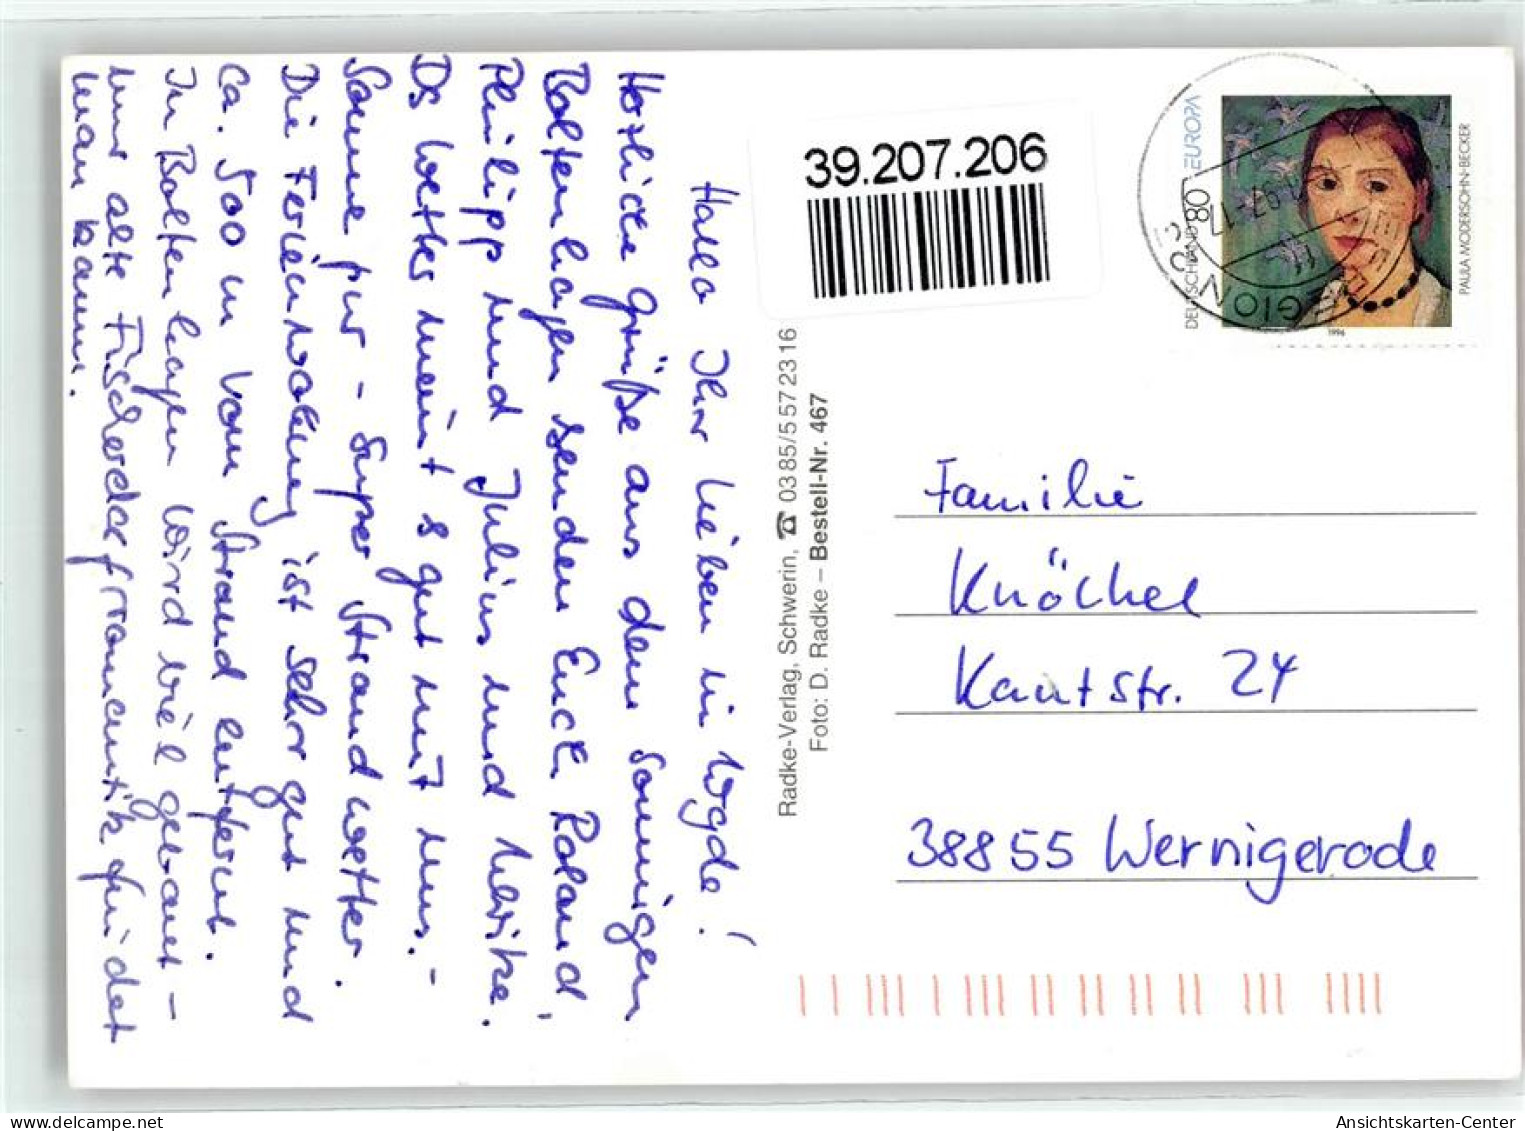 Hallo Ihr Lieben in Wgde!
Herzliche Grüße aus dem sonnigen
Boltenhagen senden Euch Roland,
Philipp und Julius und Ulrike.
DS Wetter meint s gut mit uns. -
Sonne pur - super Strandwetter.
Die Ferienwohnung ist sehr gut und
ca. 500 m vom Strand entfernt.
In Boltenhagen wird viel gebaut -
nur alte Fischerdorfromantik findet
man kaum.
Radke-Verlag, Schwerin, ☎ 03 85/5 57 23 16
Foto: D. Radke – Bestell-Nr. 467
39.207.206
DEUTSCHLAND 80 EUROPA
PAULA MODERSOHN-BECKER
1996
Familie
Knöchel
Kantstr. 24
38855 Wernigerode
Ansichtskarten-Center